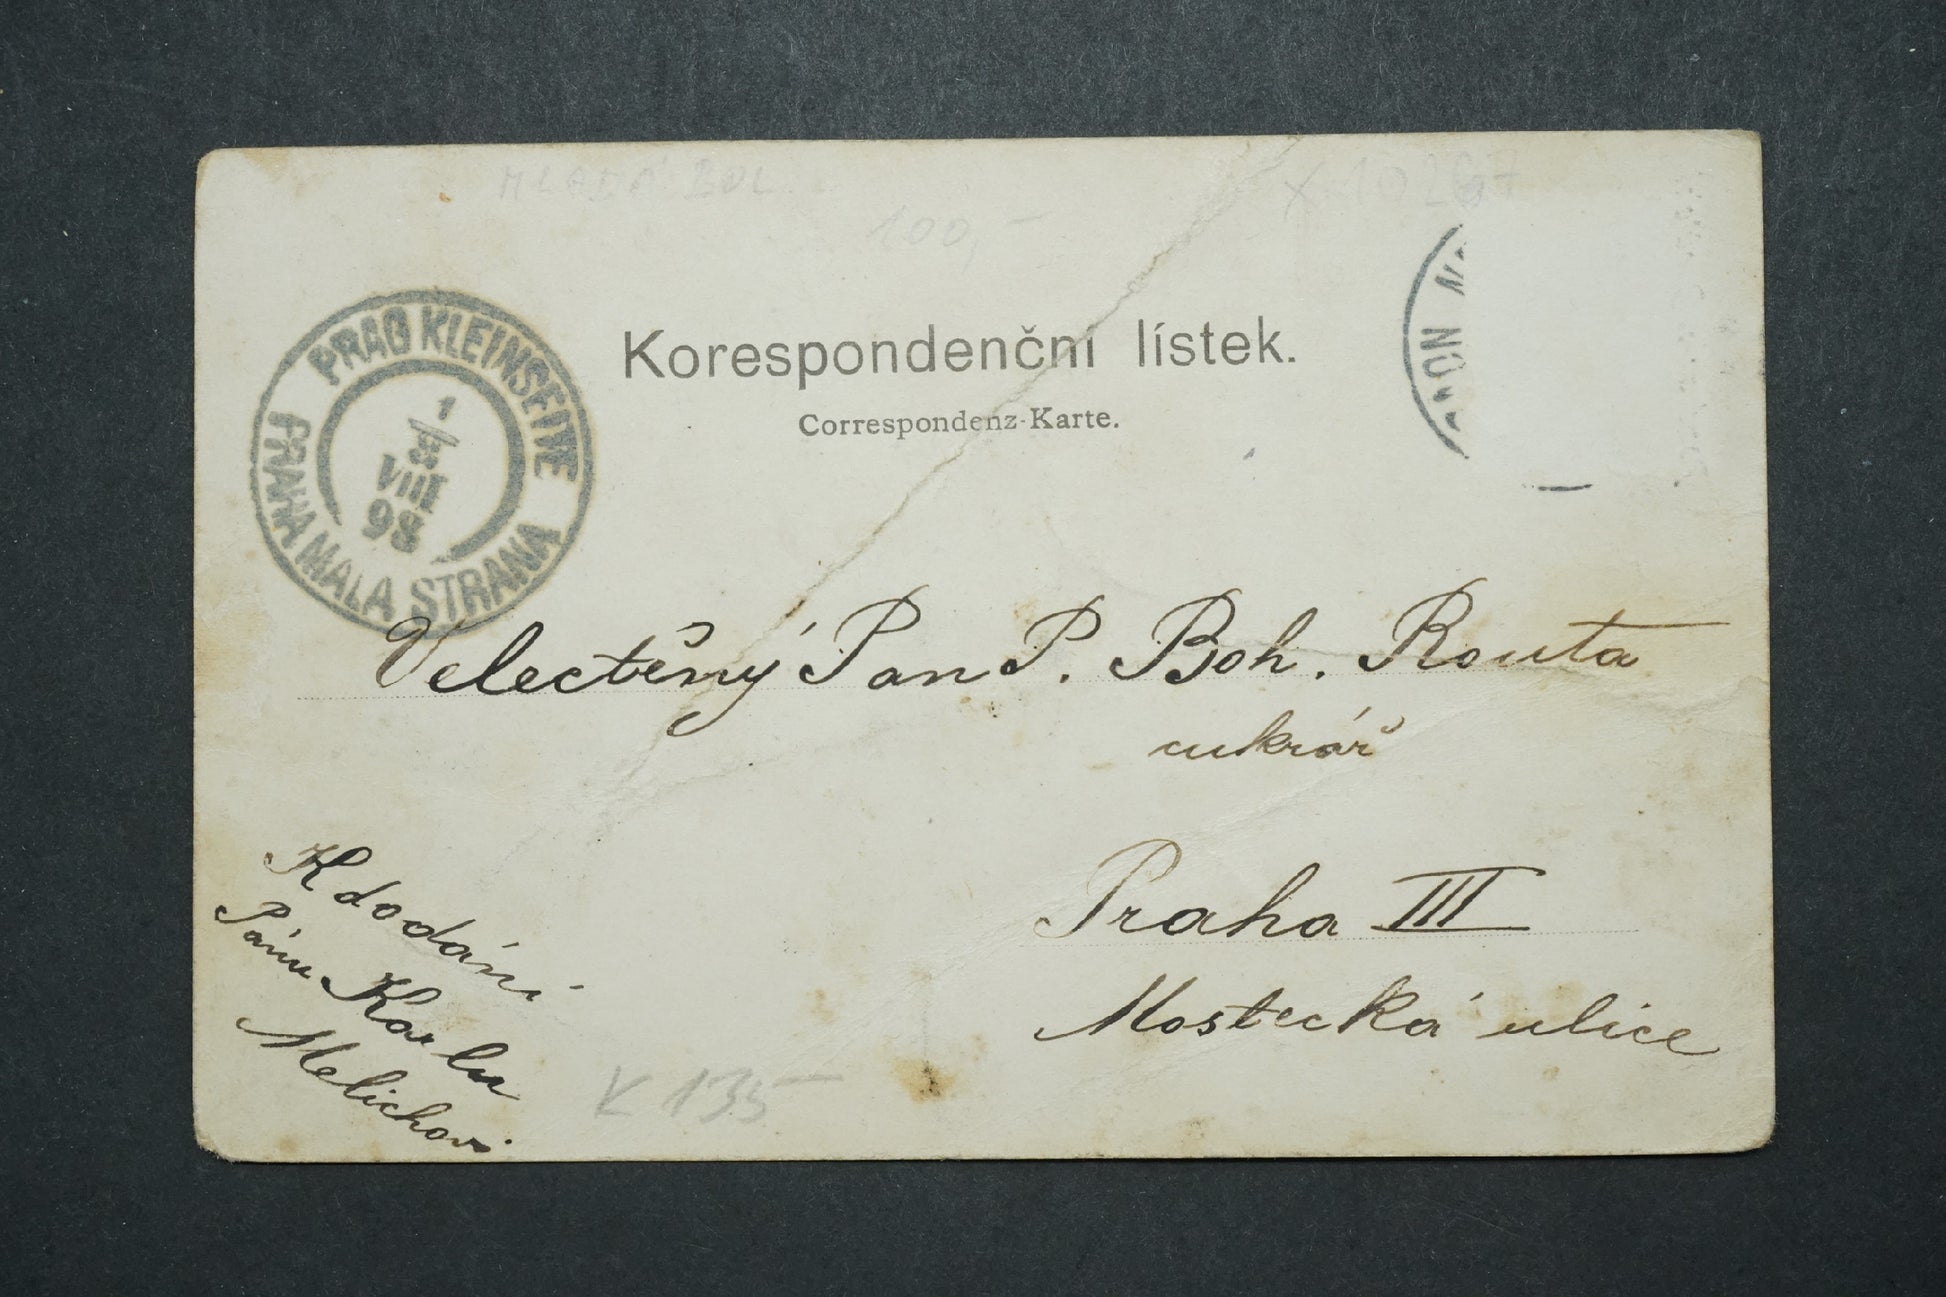 MLADÁ BOL
X 10267
100,-
Korespondenční lístek.
Correspondenz-Karte.
PRAG KLEINSEITE
PRAHA MALÁ STRANA
1
8
VIII
98
Velectěný Pan P. Boh. Routa
cukrář
Praha III
Mostecká ulice
K dodání
Pánu Karlu
Melichovi
K 135-